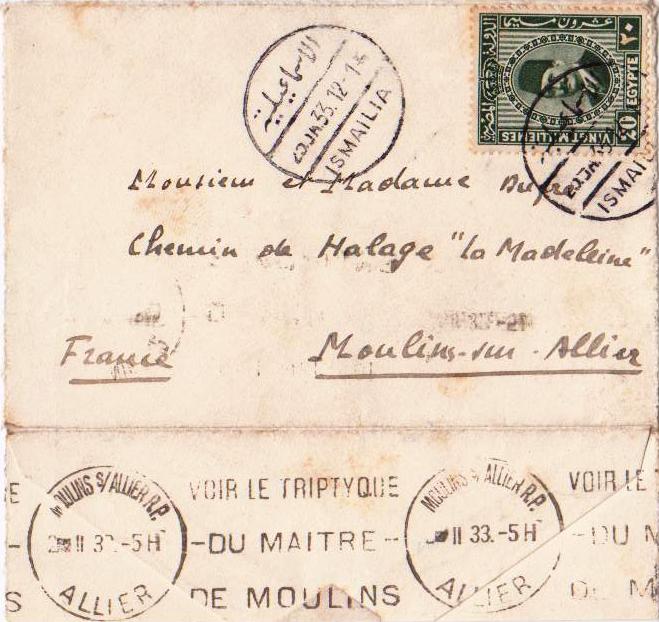 الإسماعيلية
20 JA 33. 12-1
ISMAILIA
الدولة المصرية
عشرون مليما
٢٠
EGYPTE
20
VINGT MILLIEMES
20 JA 33
ISMAILIA
Monsieur et Madame
Chemin de Halage "La Madeleine"
France
Moulins-sur-Allier
MOULINS S/ALLIER R.P.
II 33.-5H
ALLIER
VOIR LE TRIPTYQUE
-DU MAITRE-
DE MOULINS
MOULINS S/ALLIER R.P.
II 33.-5H
ALLIER
VOIR LE
-DU M
DE M